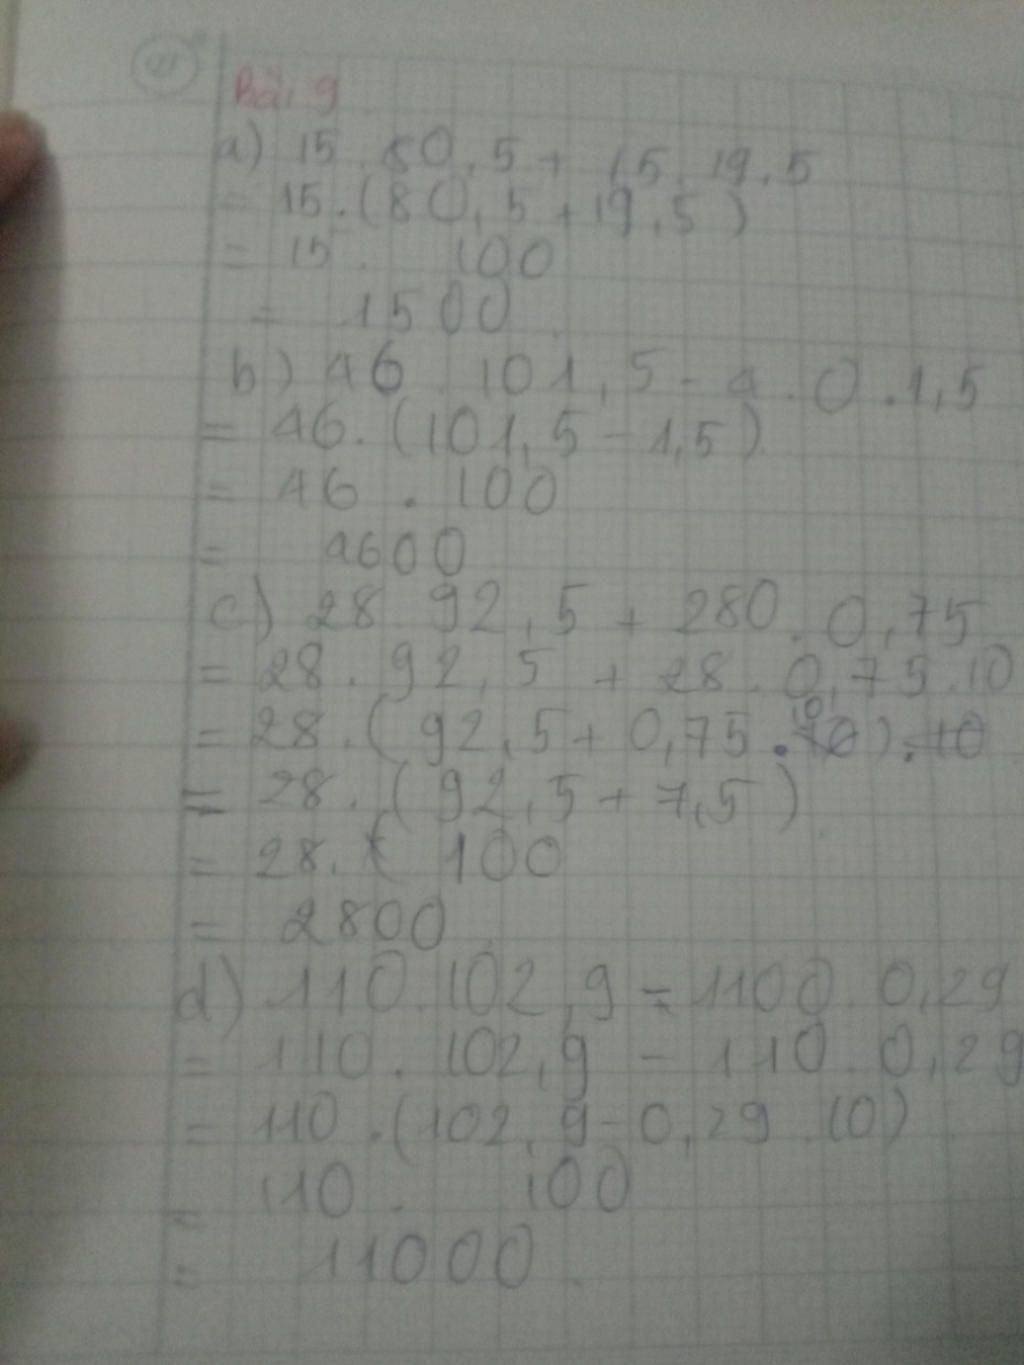 Bài 9
a) 15 . 80,5 + 15 . 19,5
= 15 . (80,5 + 19,5)
= 15 . 100
= 1500
b) 46 . 101,5 - 4 . 0 . 1,5
= 46 . (101,5 - 1,5)
= 46 . 100
= 4600
c) 28 92,5 + 280 . 0,75
= 28 . 92,5 + 28 . 0,75 . 10
= 28 . (92,5 + 0,75 . 10) . 10
= 28 . (92,5 + 7,5)
= 28 . ( 100
= 2800
d) 110 . 102,9 - 1100 . 0,29
= 110 . 102,9 - 110 . 0,29
= 110 . (102,9 - 0,29 . 10)
= 110 . 100
= 11000